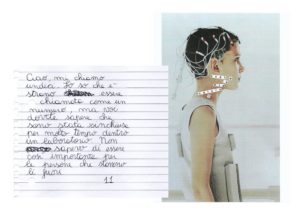 Ciao, mi chiamo
undici. Io so che è
strano essere
chiamata come un
numero, ma voi
dovete sapere che
sono stata rinchiusa
per molto tempo dentro
un laboratorio. Non
sapevo di essere
così importante per
le persone che stavano
lì fuori
11